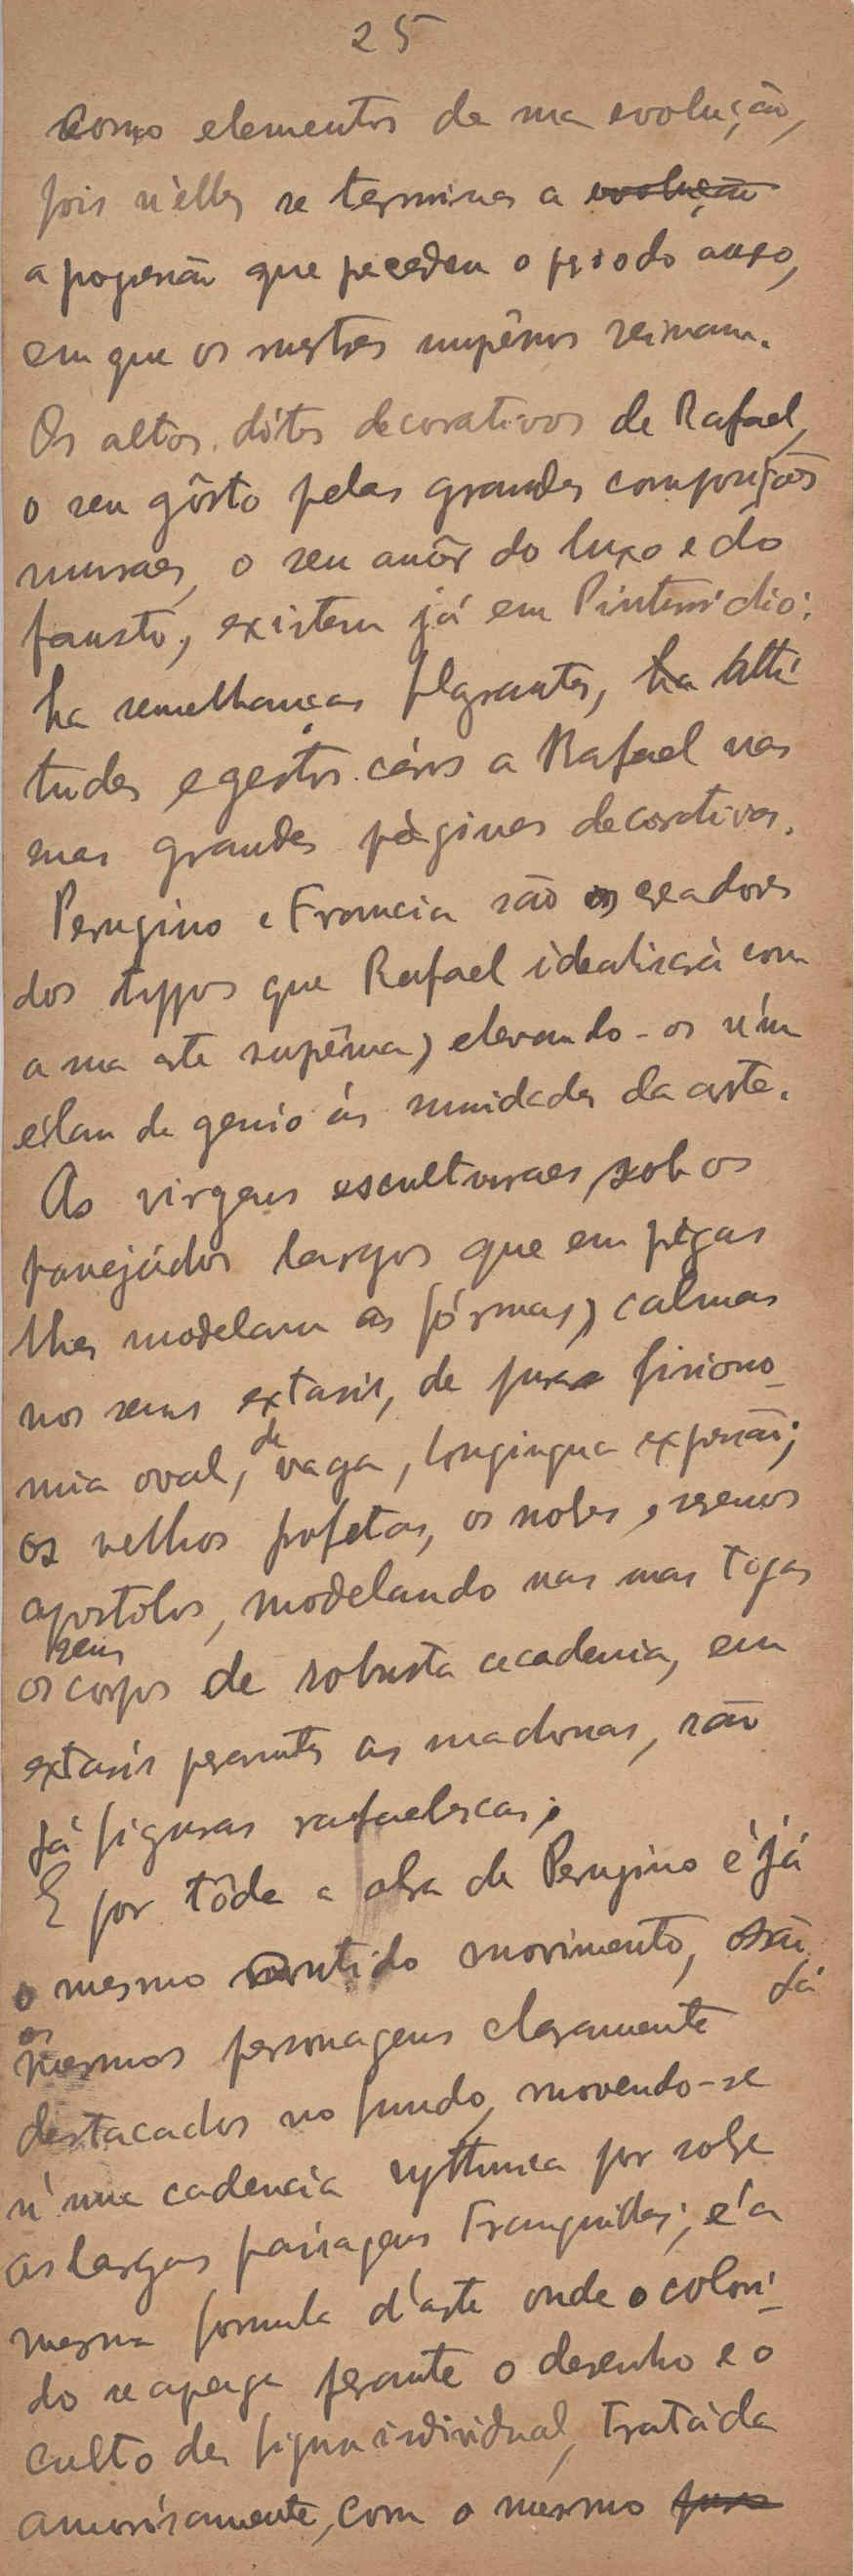 25
como elementos da sua evolução,
pois n'elles se termina a evolução
a progressão que precedeu o periodo aureo,
em que os mestres suprêmos reinam.
Os altos dótes decorativos de Rafael,
o seu gôsto pelas grandes composições
muraes, o seu amôr do luxo e do
fausto, existem já em Pinturicchio:
ha semelhanças flagrantes, ha atti
tudes e gestos cáros a Rafael nas
suas grandes páginas decorativas.
Perugino e Francia são os creadores
dos typpos que Rafael idealisará com
a sua arte suprêma, elevando-os n'um
élan de genio ás sumidades da arte.
As virgens esculturaes, sob os
panejádos largos que em prégas
lhes modelam as fórmas, calmas
nos seus extasis, de pura fisiono-
mia oval, de vaga, longinqua expressão;
os velhos profetas, os nobres e serenos
apostolos, modelando nas suas togas
os seus corpos de robusta academia, em
extasis perante as madonas, são
já figuras rafaelescas;
E por tôda a obra de Perugino é já
o mesmo sentido movimento, são já
os mesmos personagens claramente
destacados no fundo, movendo-se
n'uma cadencia rythmica por sobre
as largas paisagens tranquillas; é a
mesma formula d'arte onde o colori-
do se apaga perante o desenho e o
culto da figura individual, tratáda
amorósamente, com o mesmo pura